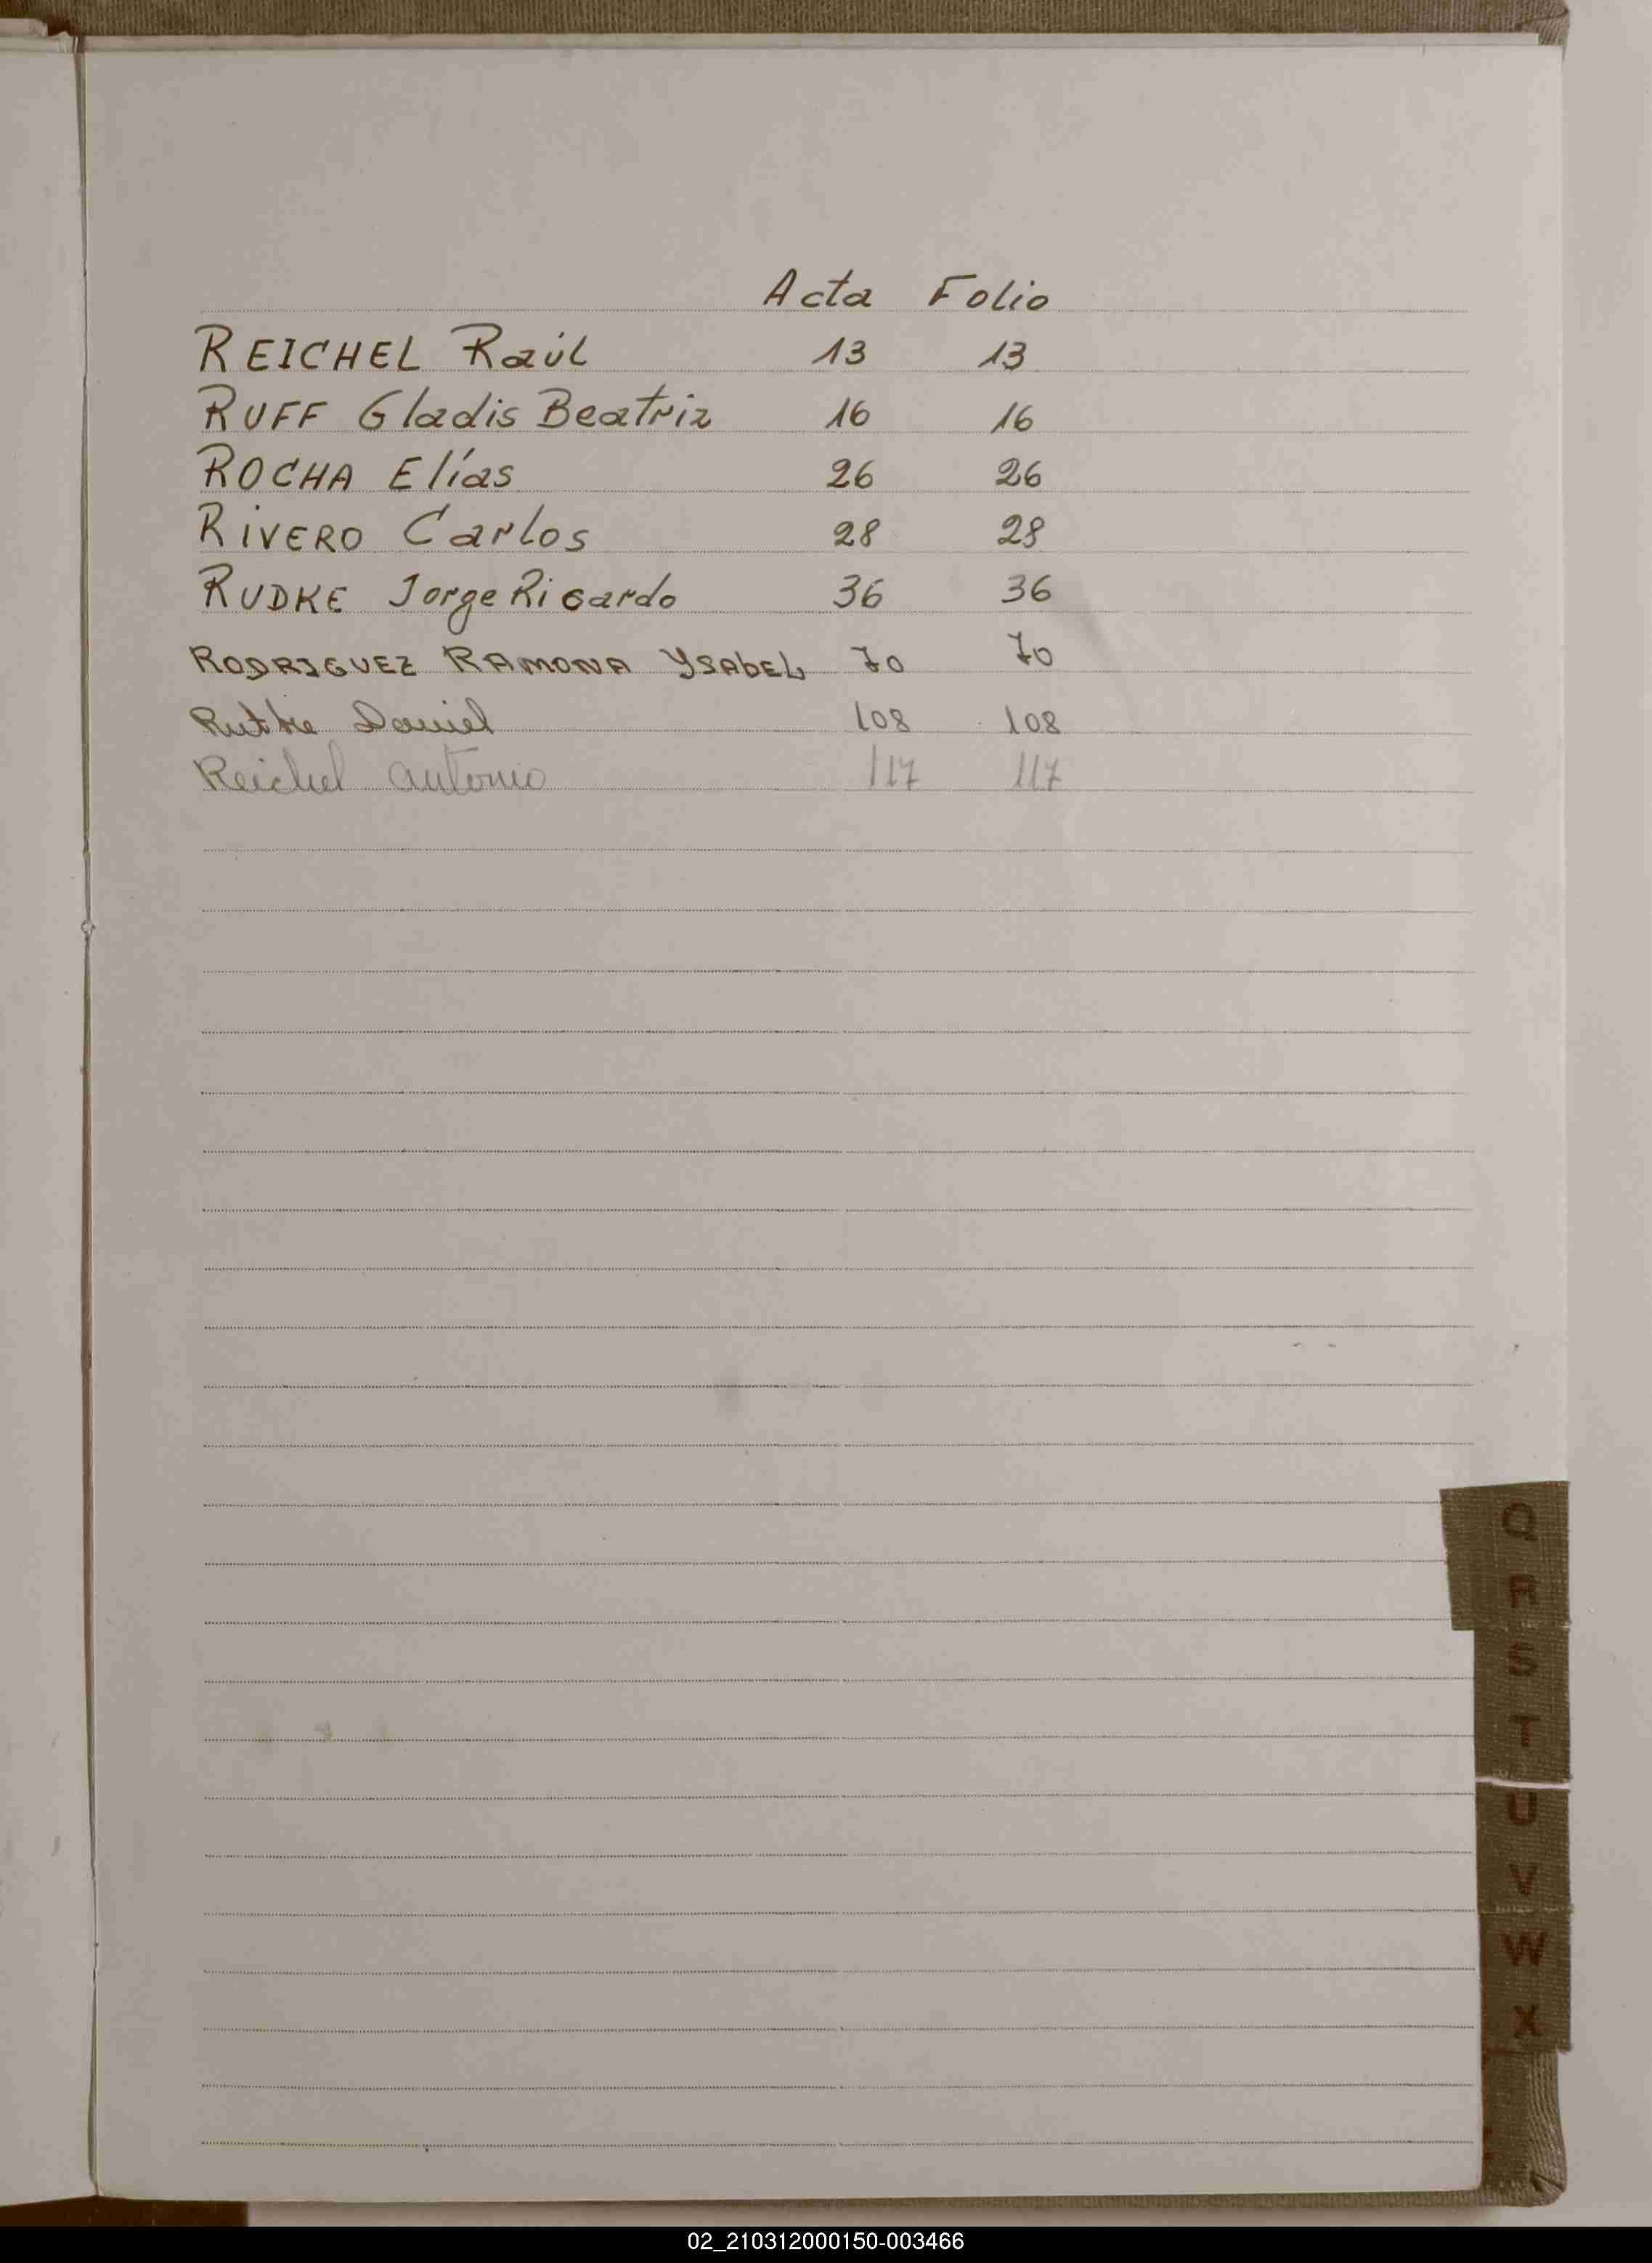 Acta Folio
REICHEL Raúl 13 13
RUFF Gladis Beatriz 16 16
ROCHA Elías 26 26
RIVERO Carlos 28 28
RUDKE Jorge Ricardo 36 36
RODRIGUEZ RAMONA YSABEL 70 70
Rutke Daniel 108 108
Reichel Antonio 117 117
Q
R
S
T
U
V
W
X
02_210312000150-003466